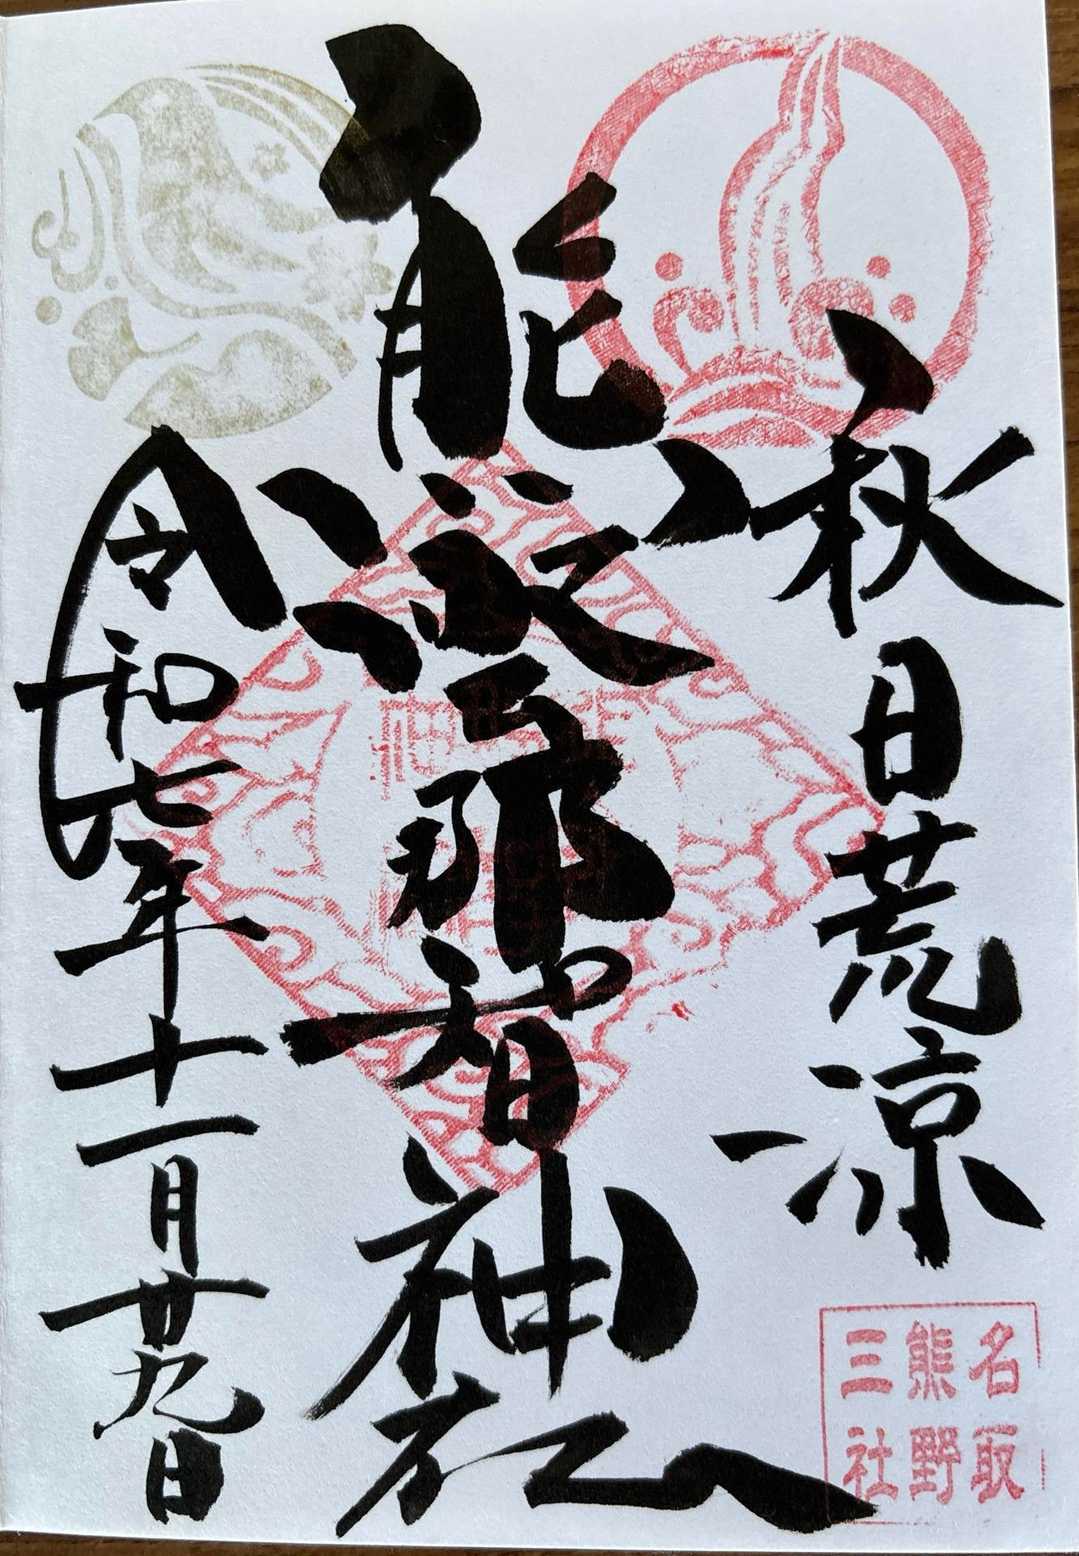 秋日荒涼
熊野那智神社
令和七年十一月廿九日
名取
熊野
三社